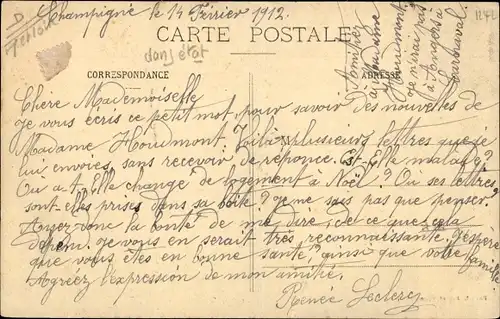 Champigné le 14 Février 1912.
CARTE POSTALE
dans état
CORRESPONDANCE
ADRESSE
Chère Mademoiselle
Je vous écris ce petit mot, pour savoir des nouvelles de
Madame Houdmont. Voilà plusieurs lettres que je
lui envoies, sans recevoir de réponce. Est-Elle malade?
Ou a-t-Elle changé de logement à Noël? Ou ses lettres
sont-elles prises dans sa boîte? Je me sais pas que penser.
Ayez donc la bonté de me dire, de ce que cela
dépend. Je vous en serait très reconnaissante. J'espère
que vous êtes en bonne santé, ainsi que votre famille
Agréez l'expression de mon amitié.
Renée Leclercq
à Madame
Houdmont
Je n'irai pas
à
Carnaval